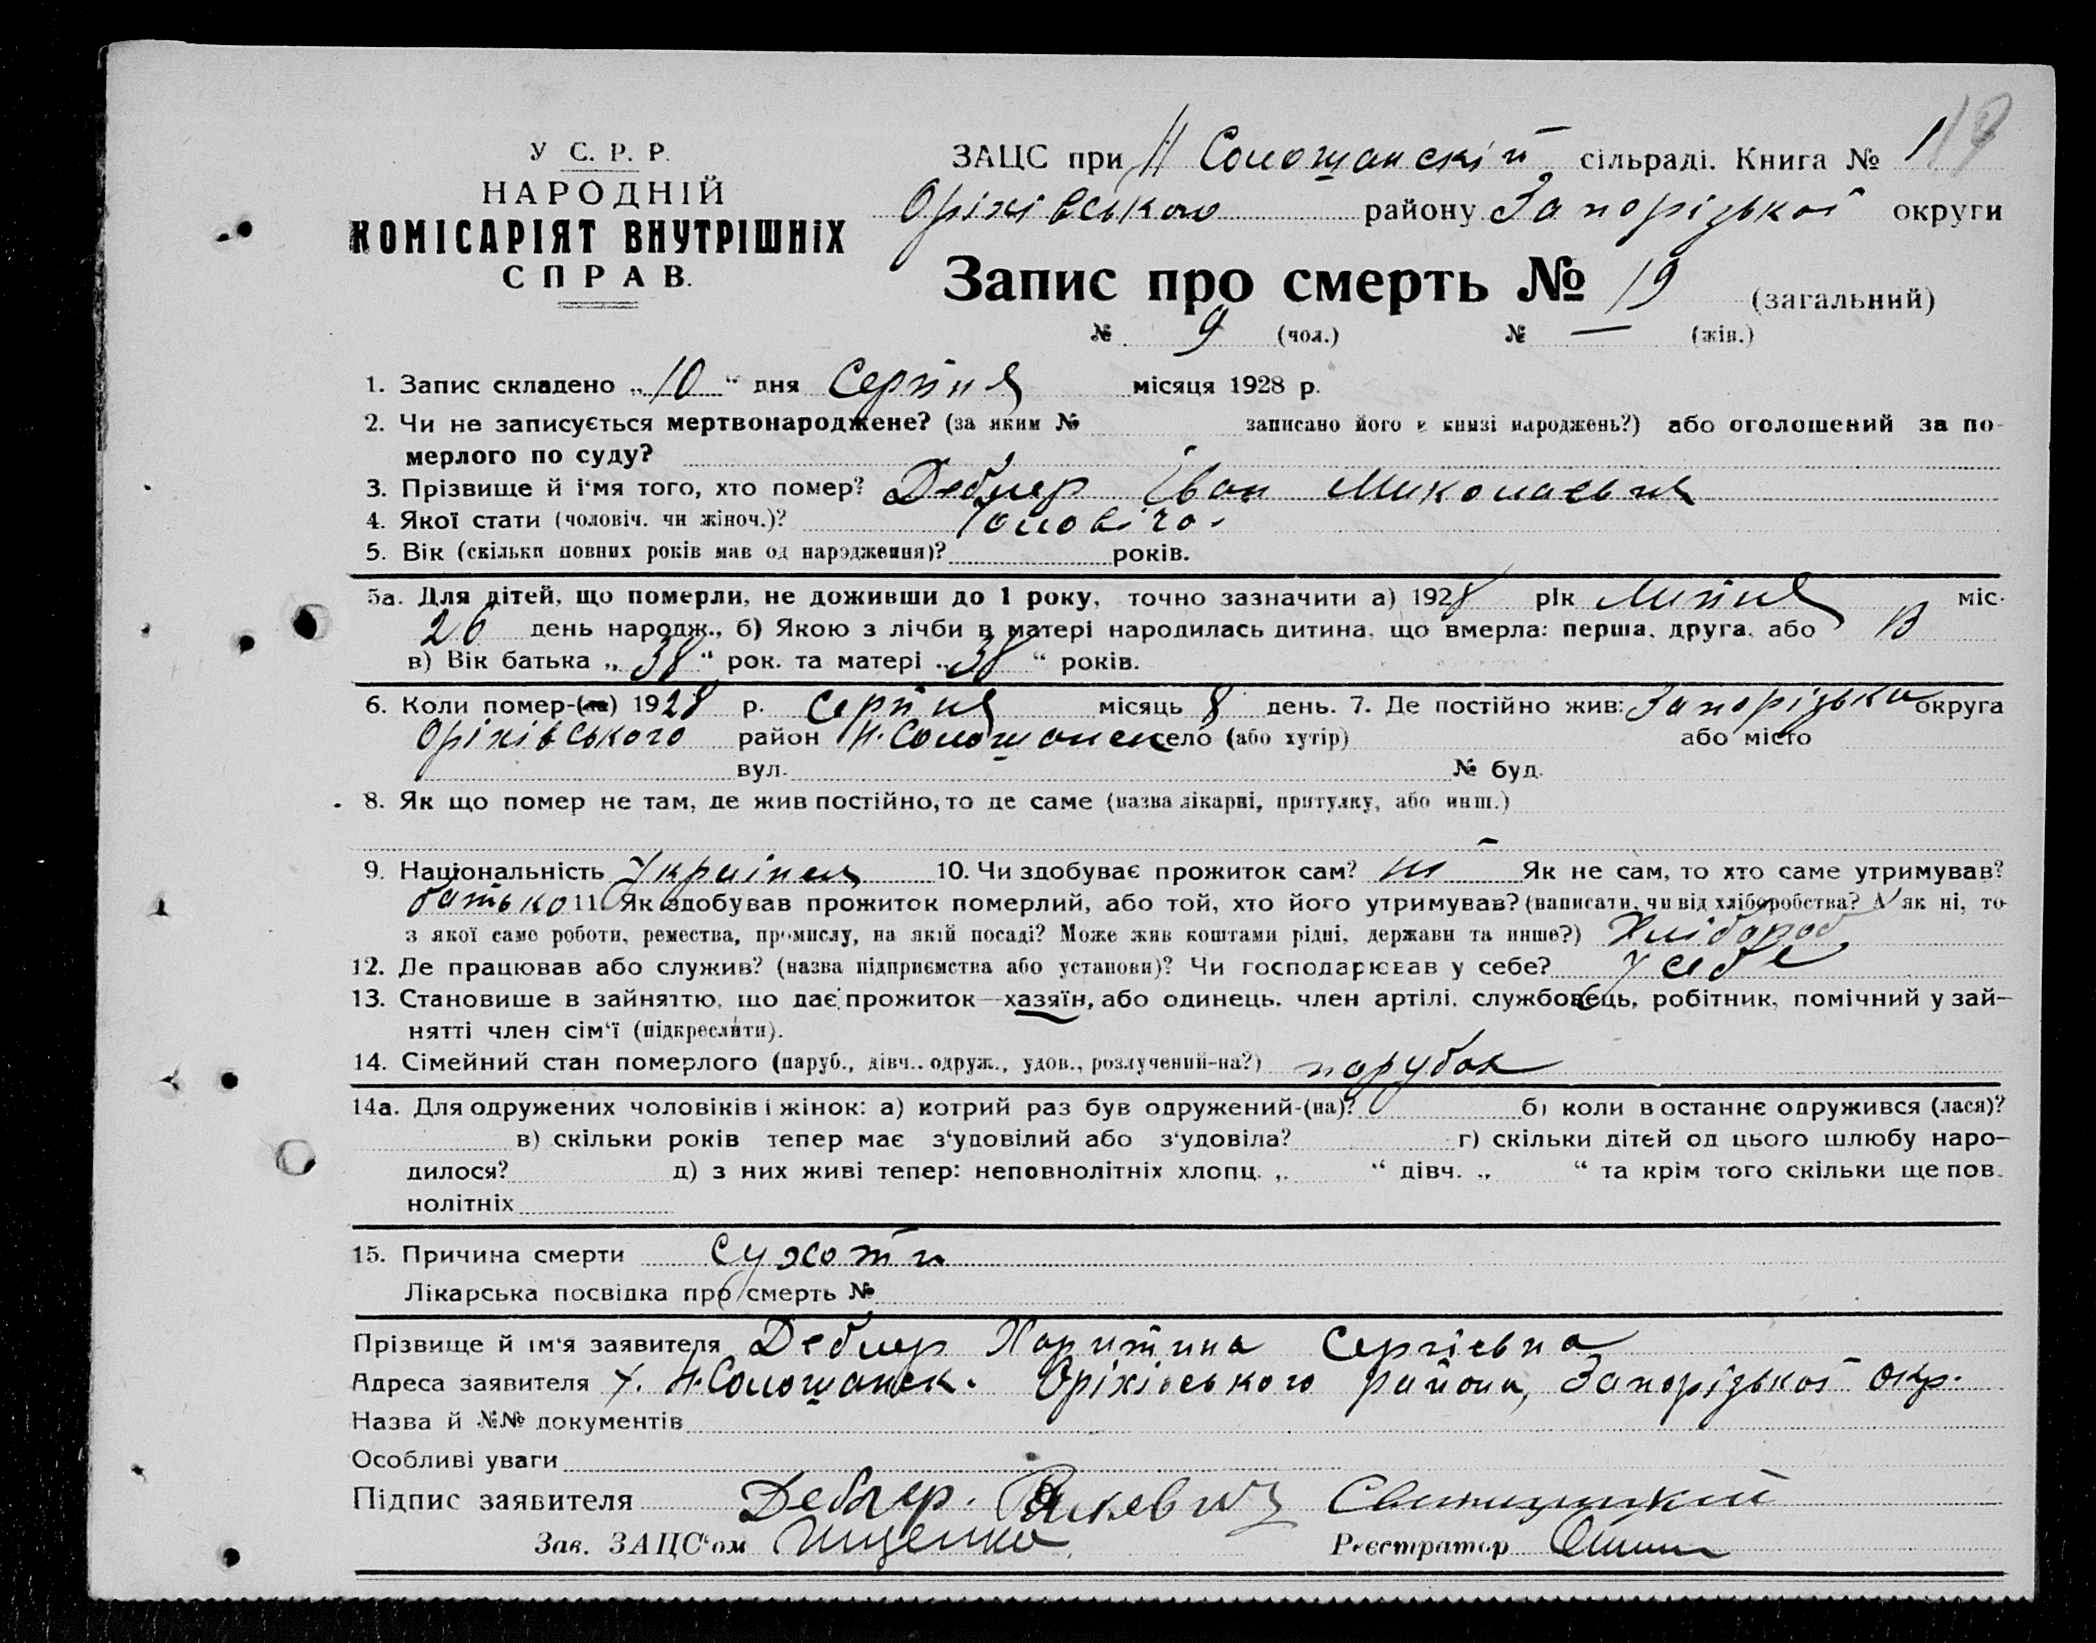 У С. Р. Р.
НАРОДНІЙ
КОМІСАРІЯТ ВНУТРІШНІХ
СПРАВ.
ЗАЦС при Н Солошанскій сільраді. Книга № 1
19
Оріхівського району Запорізької округи
Запис про смерть № 19 (загальний)
№ 9 (чол.) № — (жін.)
1. Запис складено „10" дня Серпня місяця 1928 р.
2. Чи не записується мертвонароджене? (за яким № записано його в книзі народжень?) або оголошений за по-
мерлого по суду?
3. Прізвище й і'мя того, хто помер? Деблер Іван Миколаевич
4. Якої стати (чоловіч. чи жіноч.)? Чоловічо.
5. Вік (скільки повних років мав од народження)? років.
5а. Для дітей, що померли, не доживши до 1 року, точно зазначити а) 1928 рік Липня міс.
26 день народж., б) Якою з лічби в матері народилась дитина, що вмерла: перша, друга, або
в) Вік батька „38" рок. та матері „38" років.
6. Коли помер-(ла) 1928 р. Серпня місяць 8 день. 7. Де постійно жив: Запорізька округа
Оріхівського район Н. Солошанск село (або хутір) або місто
вул. № буд.
8. Як що помер не там, де жив постійно, то де саме (назва лікарні, притулку, або инш.)
9. Національність Українец 10. Чи здобуває прожиток сам? ні Як не сам, то хто саме утримував?
батько 11. Як здобував прожиток померлий, або той, хто його утримував? (написати, чи від хліборобства? А як ні, то
з якої саме роботи, ремества, промислу, на якій посаді? Може жив коштами рідні, держави та инше?) Хлібороб
12. Де працював або служив? (назва підприємства або установи)? Чи господарював у себе? у себе
13. Становище в зайняттю, що дає прожиток—хазяїн, або одинець, член артілі, службовець, робітник, помічний у зай-
нятті член сім'ї (підкреслити).
14. Сімейний стан померлого (паруб., дівч.. одруж., удов., розлучений-на?) парубок
14а. Для одружених чоловіків і жінок: а) котрий раз був одружений-(на)? б) коли в останнє одружився (лася)?
в) скільки років тепер має з'удовілий або з'удовіла? г) скільки дітей од цього шлюбу наро-
дилося? д) з них живі тепер: неповнолітніх хлопц. „ " дівч. „ " та крім того скільки ще пов.
нолітніх
15. Причина смерти Сухоти
Лікарська посвідка про смерть №
Прізвище й ім'я заявителя Деблер Харитина Сергіевна
Адреса заявителя х. Н. Солошанск. Оріхівського района, Запорізької окр.
Назва й №№ документів
Особливі уваги
Підпис заявителя Деблер.
Зав. ЗАЦС'ом Ищенко Реєстратор